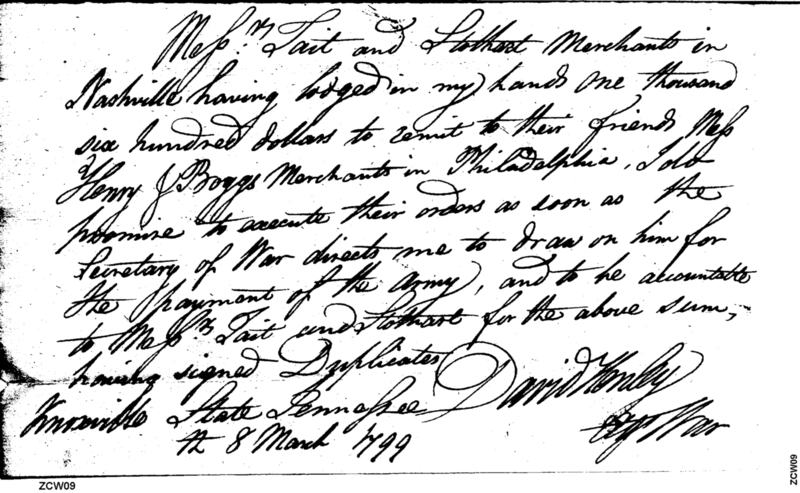 Mess.rs Tait and Stothart Merchants in
Nashville having lodged in my hands One thousand
six hundred dollars to remit to their friends Mess
Henry & Boggs Merchants in Philadelphia, I do
promise to execute their orders as soon as the
Secretary of War directs me to draw on him for
the payment of the Army, and to be accountable
to Mess.rs Tait and Stothart for the above sum,
having signed Duplicates
David Henley
Agt War
Knoxville State Tennessee
8 March 1799
ZCW09
ZCW09